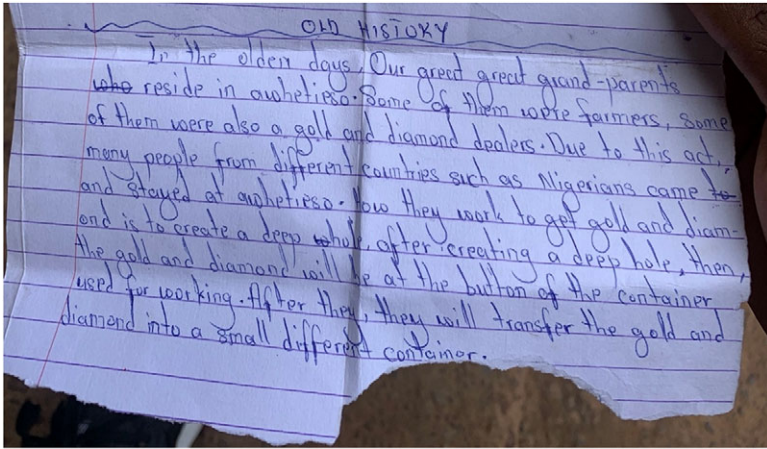 OLD HISTORY
In the olden days, Our great great grand-parents
who reside in awhetieso. Some of them were farmers, some
of them were also a gold and diamond dealers. Due to this act,
many people from different countries such as Nigerians came to
and stayed at awhetieso. How they work to get gold and diam-
ond is to create a deep whole, after creating a deep hole, then,
the gold and diamond will be at the button of the container
used for working. After they, they will transfer the gold and
diamond into a small different container.